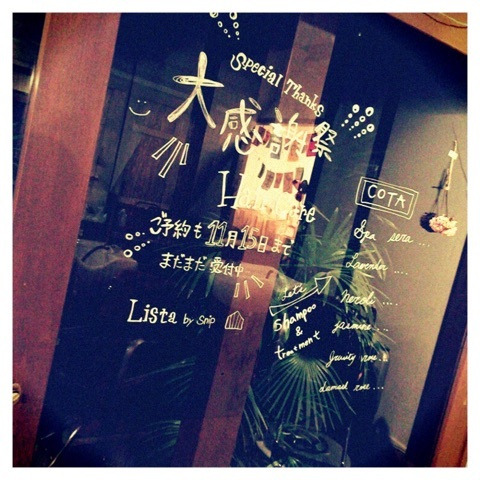 Special Thanks
大感謝祭
ご予約も11月15日まで
まだまだ受付中...
Lista by Snip
Let's
Shampoo
&
treatment
COTA
Spa sera...
Lavender ....
Neroli ....
jasmine...
damask rose...